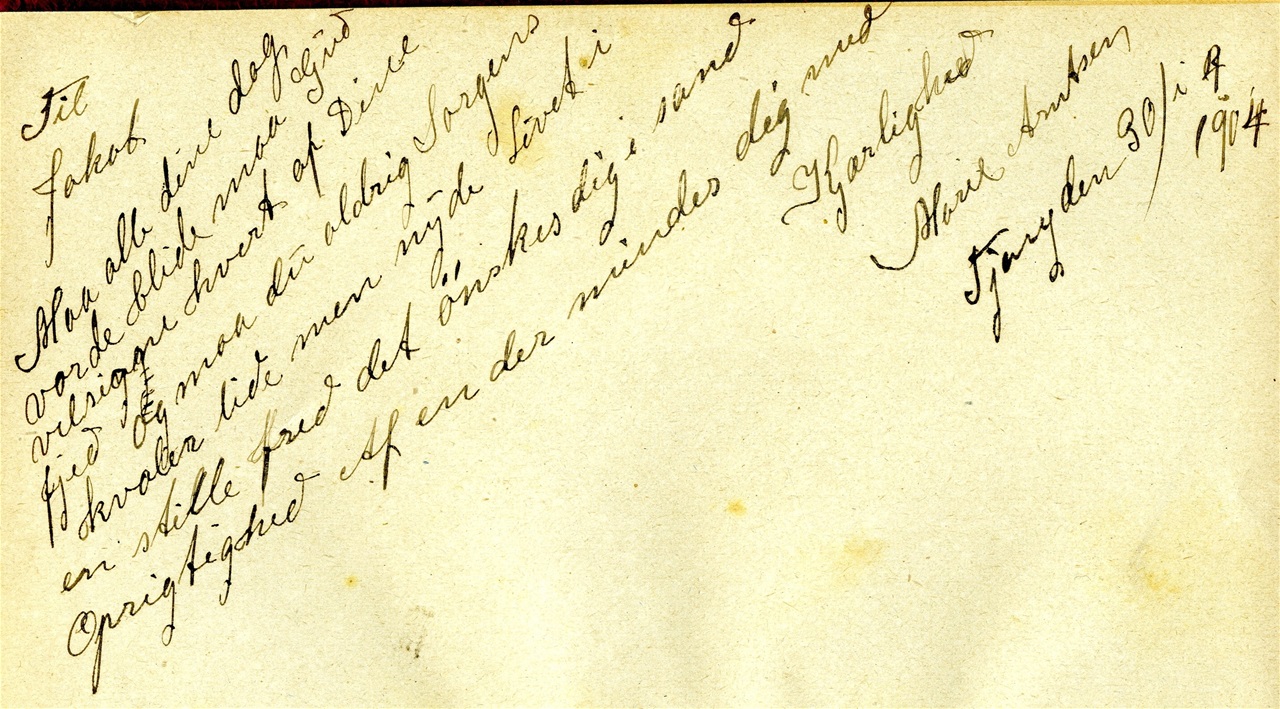 Til
Jakob
Maa alle dine dag
vorde blide maa Gud
velsigne hvert af Dine
fjed og maa du aldrig Sorgens
kvaler lide men nyde Livet i
en stille fred det önskes dig i sand
Oprigtighed Af en der mindes dig med
Kjærlighed
Marie Arntsen
den 30/i 9
1904